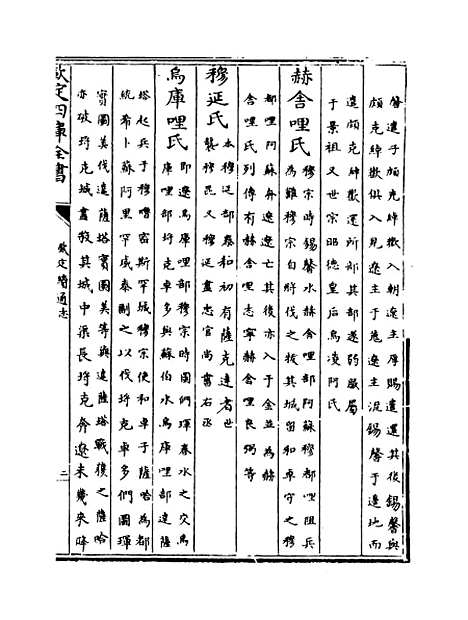 馨遣子頗克綽歡入朝遼主厚賜遣還其後錫馨與
頗克綽歡俱入見遼主于遼主泥錫馨于邊地而
遣頗克綽歡還所部其部遂弱屬
于景祖又世宗昭德皇后烏凌阿氏
赫舍哩氏
穆宗時錫馨水赫舍哩部阿蘇穆都哩阻兵
為難穆宗自將伐之拔其城留和卓守之穆
都哩阿蘇奔遼遼亡其後亦入于金並為赫
舍哩氏列傳有赫舍哩志寧赫舍哩良弼等
穆延氏
本穆延部泰和初有薩克達者世
襲穆昆又穆延盧忠官尚書右丞
烏庫哩氏
即遼烏庫哩部穆宗時圖們琿春水之交烏
庫哩部埒克卓多與蘇伯水烏庫哩部達薩
塔起兵于穆嚕密斯罕城穆宗使和卓于薩哈為都
統希卜蘇阿里罕威泰副之以伐埒克卓多們圖琿
寳圖美伐達薩塔寳圖美等與達薩塔戰復之薩哈
亦破埒克城盡殺其城中渠長埒克奔遼未幾來降
欽定四庫全書
欽定續通志
二